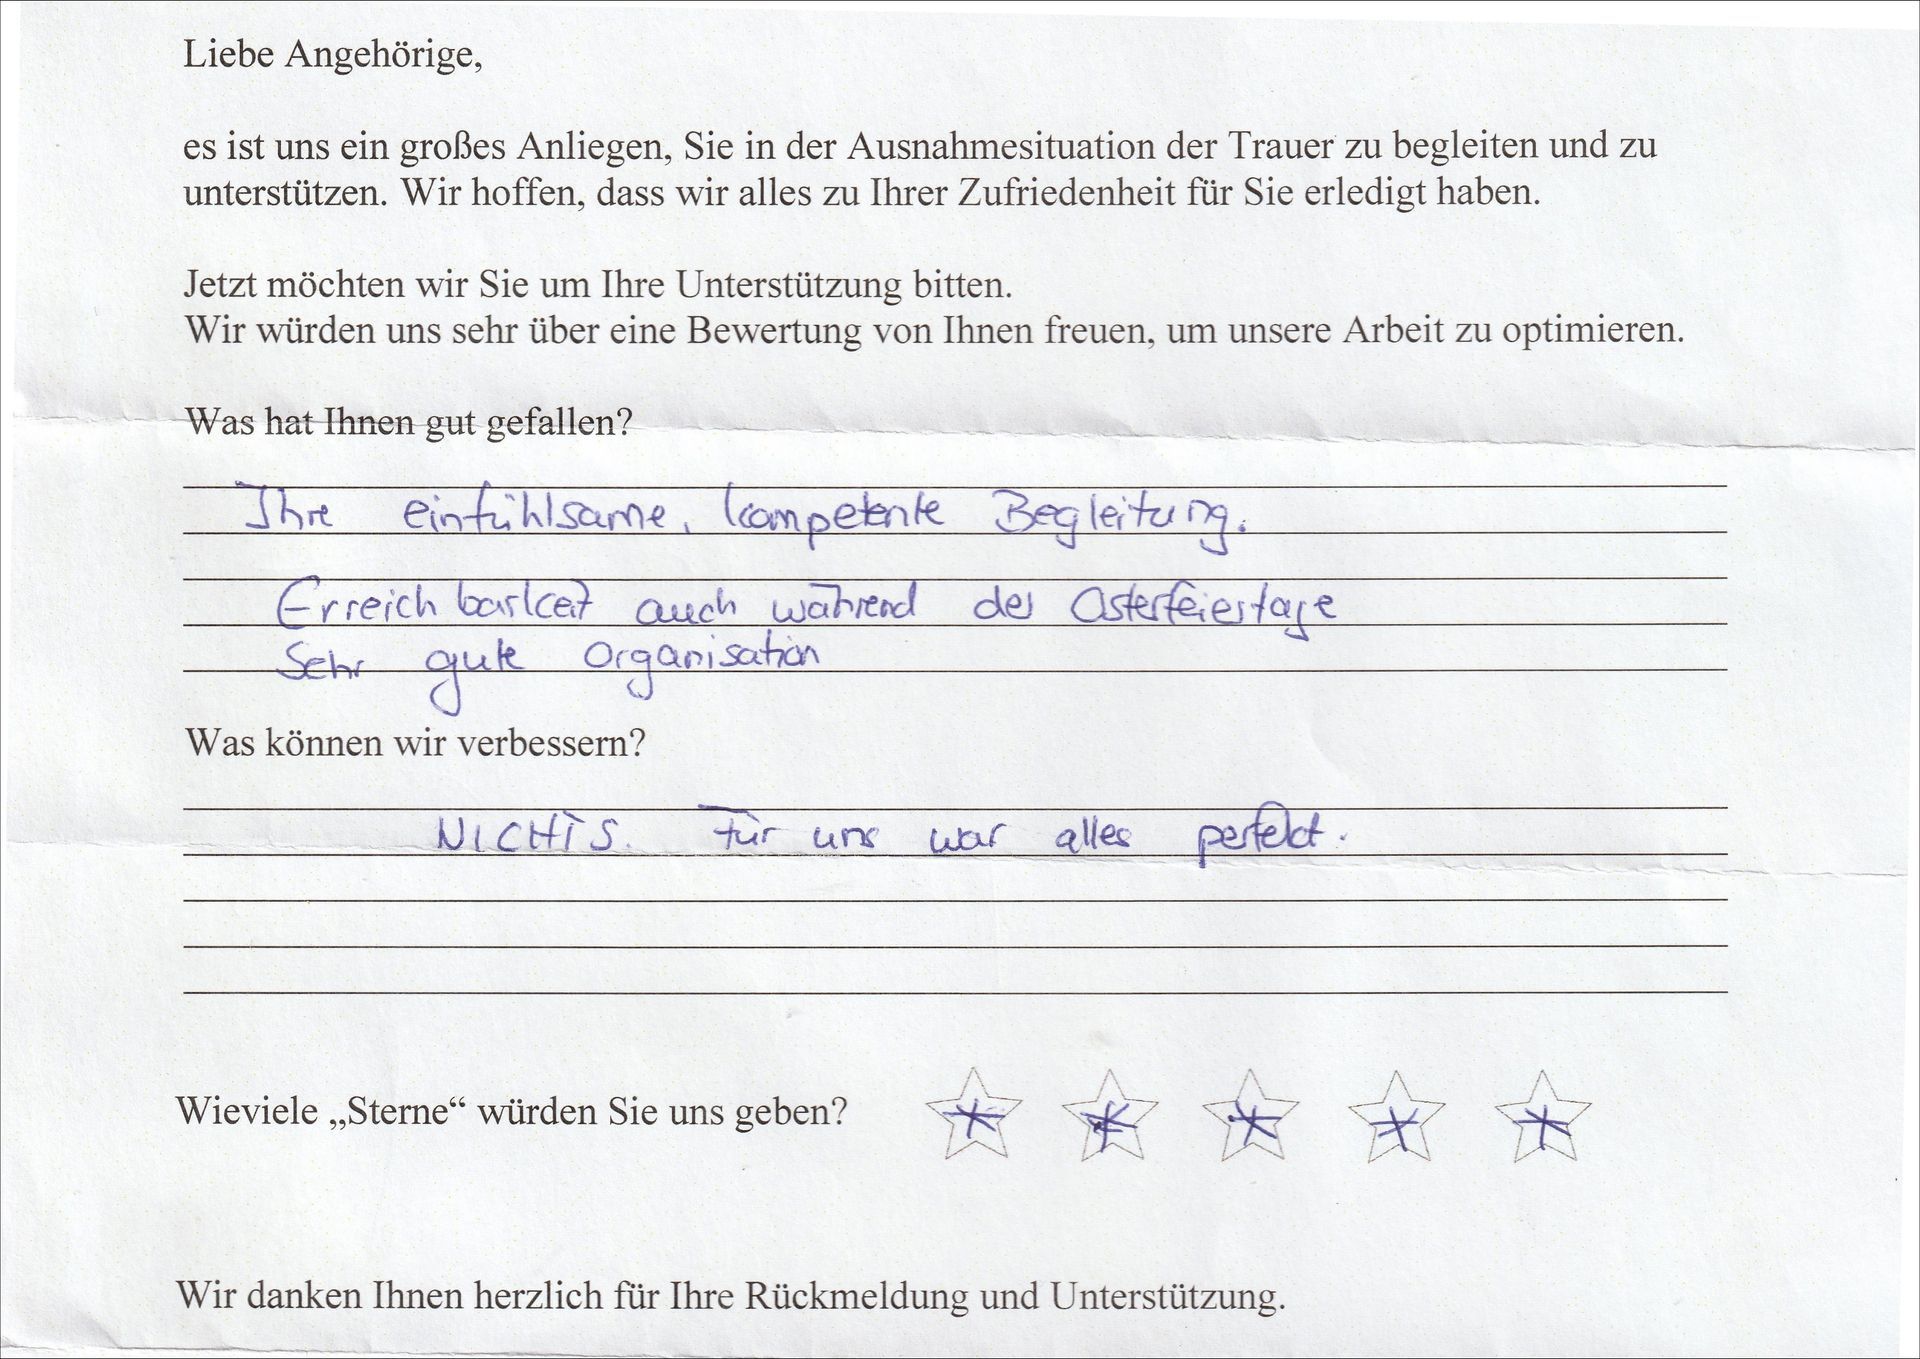 Liebe Angehörige,
es ist uns ein großes Anliegen, Sie in der Ausnahmesituation der Trauer zu begleiten und zu
unterstützen. Wir hoffen, dass wir alles zu Ihrer Zufriedenheit für Sie erledigt haben.
Jetzt möchten wir Sie um Ihre Unterstützung bitten.
Wir würden uns sehr über eine Bewertung von Ihnen freuen, um unsere Arbeit zu optimieren.
Was hat Ihnen gut gefallen?
Ihre einfühlsame, kompetente Begleitung.
Erreichbarkeit auch während der Osterfeiertage
Sehr gute Organisation
Was können wir verbessern?
NICHTS. Für uns war alles perfekt.
Wieviele „Sterne“ würden Sie uns geben?
Wir danken Ihnen herzlich für Ihre Rückmeldung und Unterstützung.